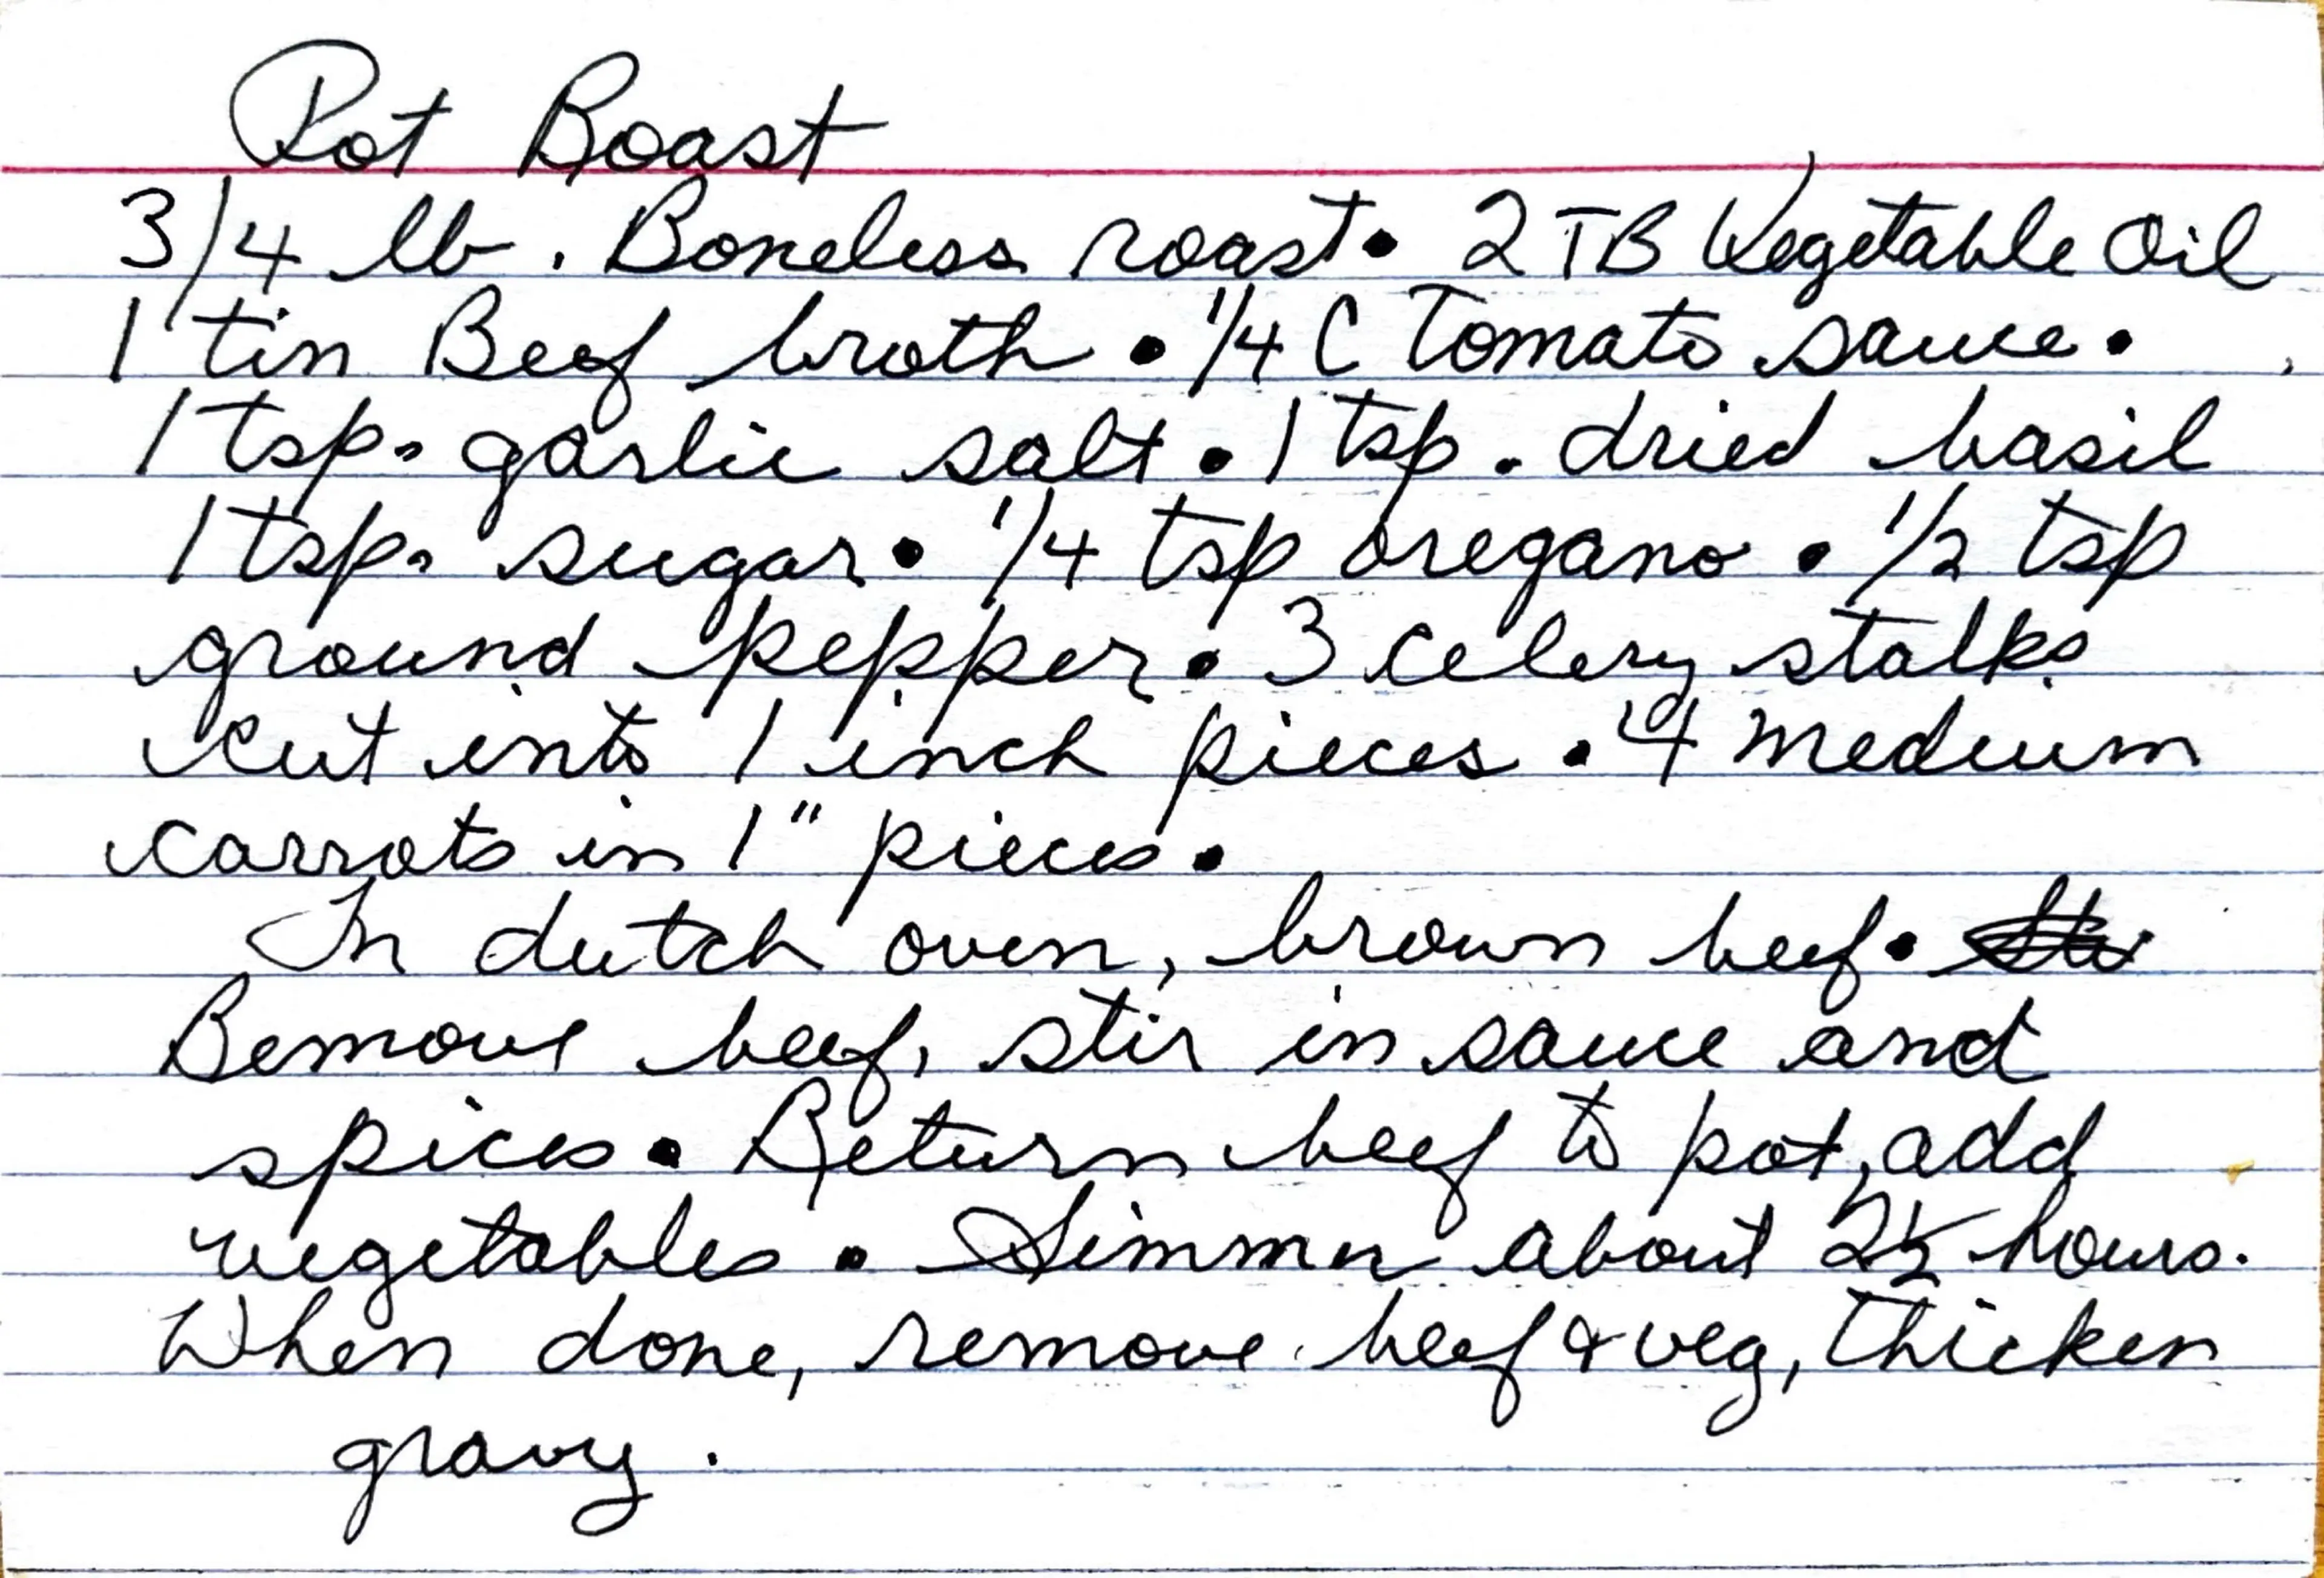 Pot Roast
3/4 lb. Boneless roast • 2 TB Vegetable Oil
1 tin Beef broth • 1/4 C Tomato sauce •
1 tsp. garlic salt • 1 tsp. dried basil
1 tsp. sugar • 1/4 tsp oregano • 1/2 tsp
ground pepper • 3 celery stalks
cut into 1 inch pieces • 4 medium
carrots in 1" pieces •
In dutch oven, brown beef •
Remove beef, stir in sauce and
spices • Return beef to pot, add
vegetables • Simmer about 2 1/2 hours.
When done, remove beef & veg, thicken
gravy.